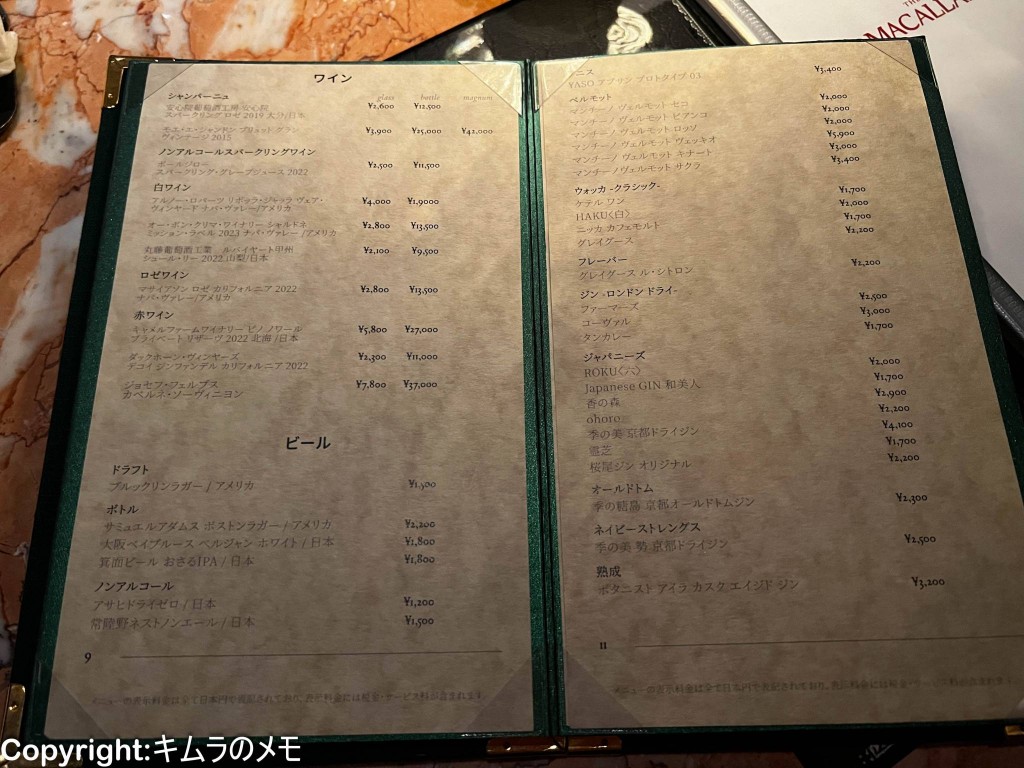 THE
MACALLA
ワイン
glass bottle magnum
シャンパーニュ
安心院葡萄酒工房 安心院
スパークリング ロゼ 2019 大分/日本 ¥2,600 ¥12,500
モエ・エ・シャンドン ブリュット グラン
ヴィンテージ 2015 ¥3,900 ¥25,000 ¥42,000
ノンアルコールスパークリングワイン
ポールジロー
スパークリング・グレープジュース 2022 ¥2,500 ¥11,500
白ワイン
アルノー・ロバーツ リボッラ・ジャッラ ヴェア・
ヴィンヤード ナパ・ヴァレー/アメリカ ¥4,000 ¥1,9000
オー・ボン・クリマ・ワイナリー シャルドネ
ミッション・ラベル 2023 ナパ・ヴァレー /アメリカ ¥2,800 ¥13,500
丸藤葡萄酒工業 ルバイヤート甲州
シュール・リー 2022 山梨/日本 ¥2,100 ¥9,500
ロゼワイン
マサイアソン ロゼ カリフォルニア 2022
ナパ・ヴァレー/アメリカ ¥2,800 ¥13,500
赤ワイン
キャメルファームワイナリー ピノ ノワール
プライベートリザーヴ 2022 北海 /日本 ¥5,800 ¥27,000
ダックホーン・ヴィンヤーズ
デコイ ジンファンデル カリフォルニア 2022 ¥2,300 ¥11,000
ジョセフ・フェルプス
カベルネ・ソーヴィニヨン ¥7,800 ¥37,000
ビール
ドラフト
ブルックリンラガー / アメリカ ¥1,500
ボトル
サミュエルアダムス ボストンラガー / アメリカ ¥2,200
大阪ベイブルース ベルジャン ホワイト / 日本 ¥1,800
箕面ビール おさるIPA / 日本 ¥1,800
ノンアルコール
アサヒドライゼロ / 日本 ¥1,200
常陸野ネストノンエール / 日本 ¥1,500
9
メニューの表示料金は全て日本円で表記されており、表示料金には税金・サービス料が含まれます。
ニス
YASO アブサン プロトタイプ 03 ¥3,400
ベルモット
マンチーノ ヴェルモット セコ ¥2,000
マンチーノ ヴェルモット ビアンコ ¥2,000
マンチーノ ヴェルモット ロッソ ¥2,000
マンチーノ ヴェルモット ヴェッキオ ¥5,900
マンチーノ ヴェルモット キナート ¥3,000
マンチーノ ヴェルモット サクラ ¥3,400
ウォッカ -クラシック-
ケテル ワン ¥1,700
HAKU〈白〉 ¥2,000
ニッカ カフェモルト ¥1,700
グレイグース ¥2,200
フレーバー
グレイグース ル・シトロン ¥2,200
ジン -ロンドン ドライ-
ファーマーズ ¥2,500
コーヴァル ¥3,000
タンカレー ¥1,700
ジャパニーズ
ROKU〈六〉 ¥2,000
Japanese GIN 和美人 ¥1,700
香の森 ¥2,900
ohoro ¥2,200
季の美 京都ドライジン ¥4,100
霊芝 ¥1,700
桜尾ジン オリジナル ¥2,200
オールドトム
季の糖島 京都オールドトムジン ¥2,300
ネイビーストレングス
季の美 勢 京都ドライジン ¥2,500
熟成
ボタニスト アイラ カスク エイジド ジン ¥3,200
11
メニューの表示料金は全て日本円で表記されており、表示料金には税金・サービス料が含まれます。
Copyright:キムラのメモ